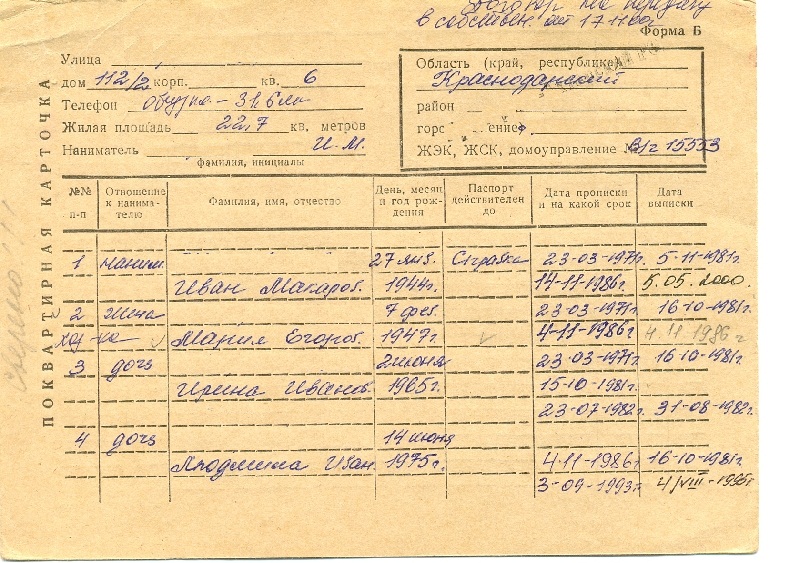 Договор на передачу
в собствен. от
Форма Б
ПОКВАРТИРНАЯ КАРТОЧКА
Улица
дом 112/2 корп. кв. 6
Телефон
Жилая площадь 22,7 кв. метров
Наниматель И. М.
фамилия, инициалы
Область (край, республика)
Краснодарский
район
ЖЭК, ЖСК, домоуправление № в/ч 15553
№№ п-п Отношение к нанимателю Фамилия, имя, отчество День, месяц и год рождения Паспорт действителен до Дата прописки и на какой срок Дата выписки
1 наним. 27 янв. 23-03-1971г. 5-11-1981г.
Иван Макаров. 1944г. 14-11-1986г. 5.05.2000.
2 жена 7 фев. 23-03-1971г. 16-10-1981г.
Мария Егоров. 1947г. 4-11-1986г. 4 11 1986 г
3 дочь 2 июня 23-03-1971г. 16-10-1981г.
Ирина Иванов. 1965г. 15-10-1981г.
23-07-1982г. 31-08-1982г.
4 дочь 14 июня
Людмила Иван. 1975г. 4-11-1986г. 16-10-1981г.
3-09-1993г.